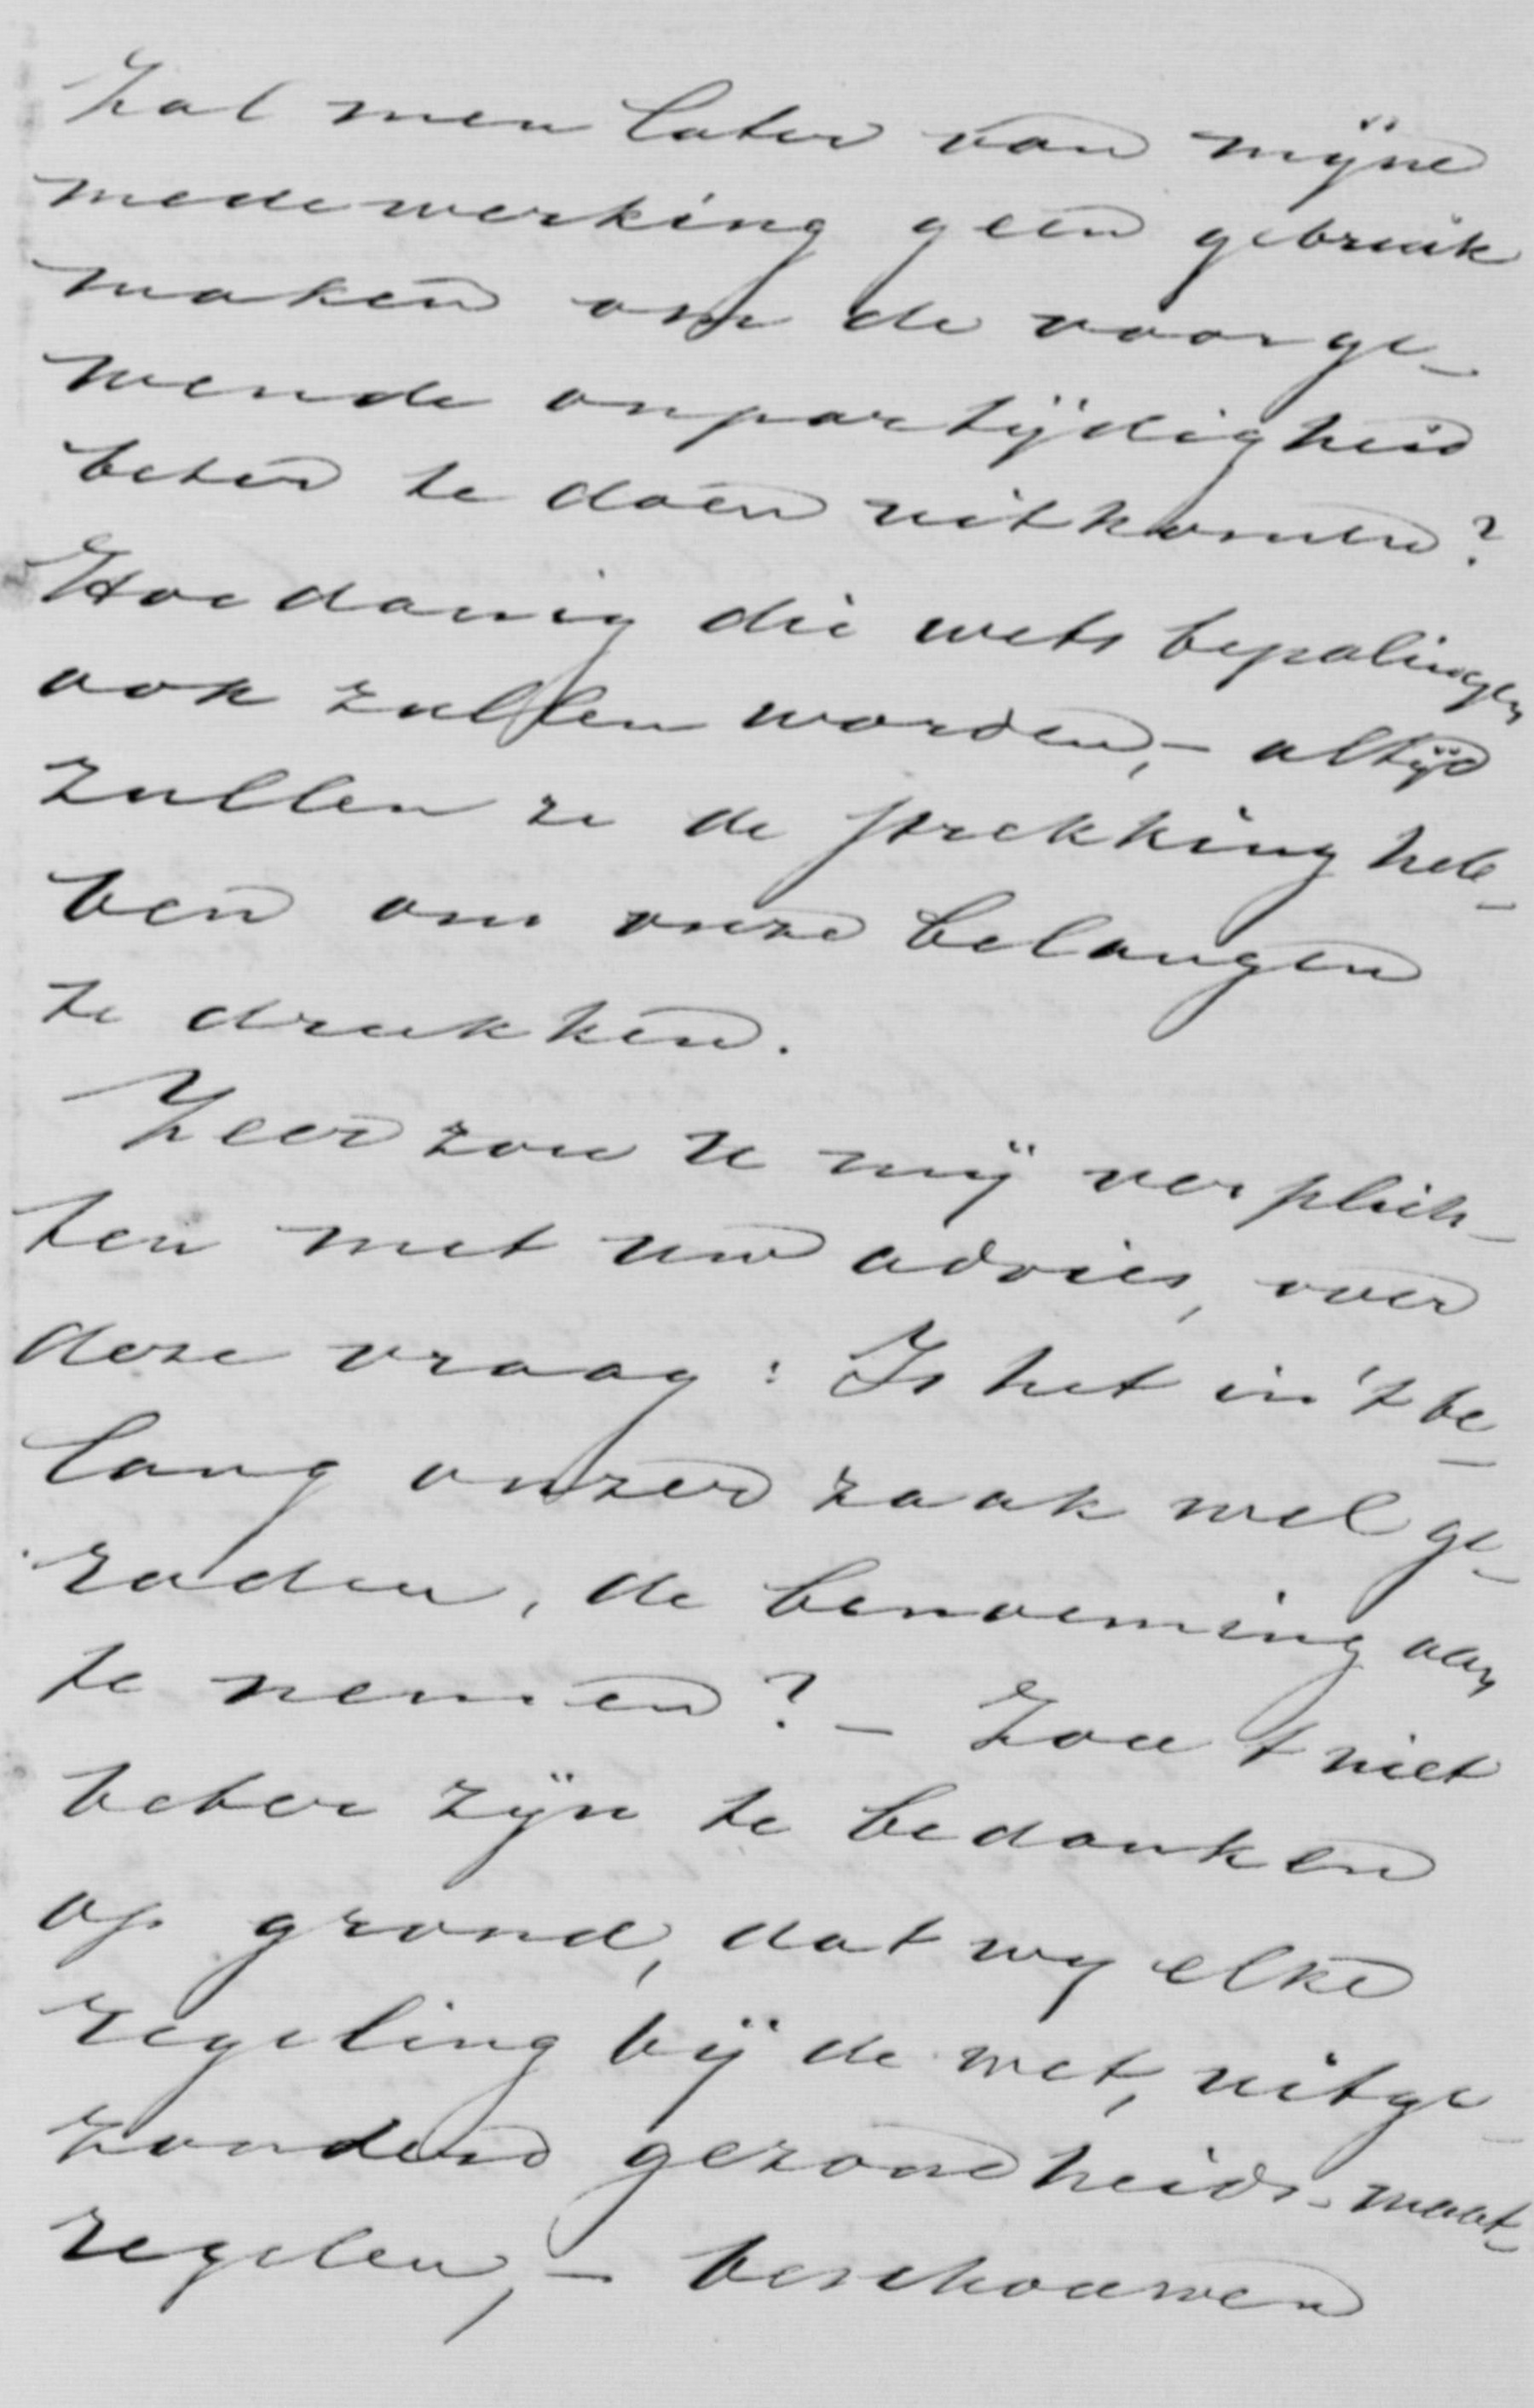 Zal men later van mijne
medewerking geen gebruik
maken om de voorge-
wende onpartijdigheid
beter te doen uitkomen?
Hoedanig die wets bepalingen
ook zullen worden, - altijd
zullen ze de strekking heb-
ben om onze belangen
te drukken.
Zeer zou u mij verplich-
ten met uw advies, over
deze vraag: Is het in 't be-
lang onzer zaak wel ge-
raden, de benoeming aan
te nemen? - Zou 't niet
beter zijn te bedanken
op grond, dat wij elke
regeling bij de wet, uitge-
zonderd gezondheids-maat-
regelen, - beschouwen